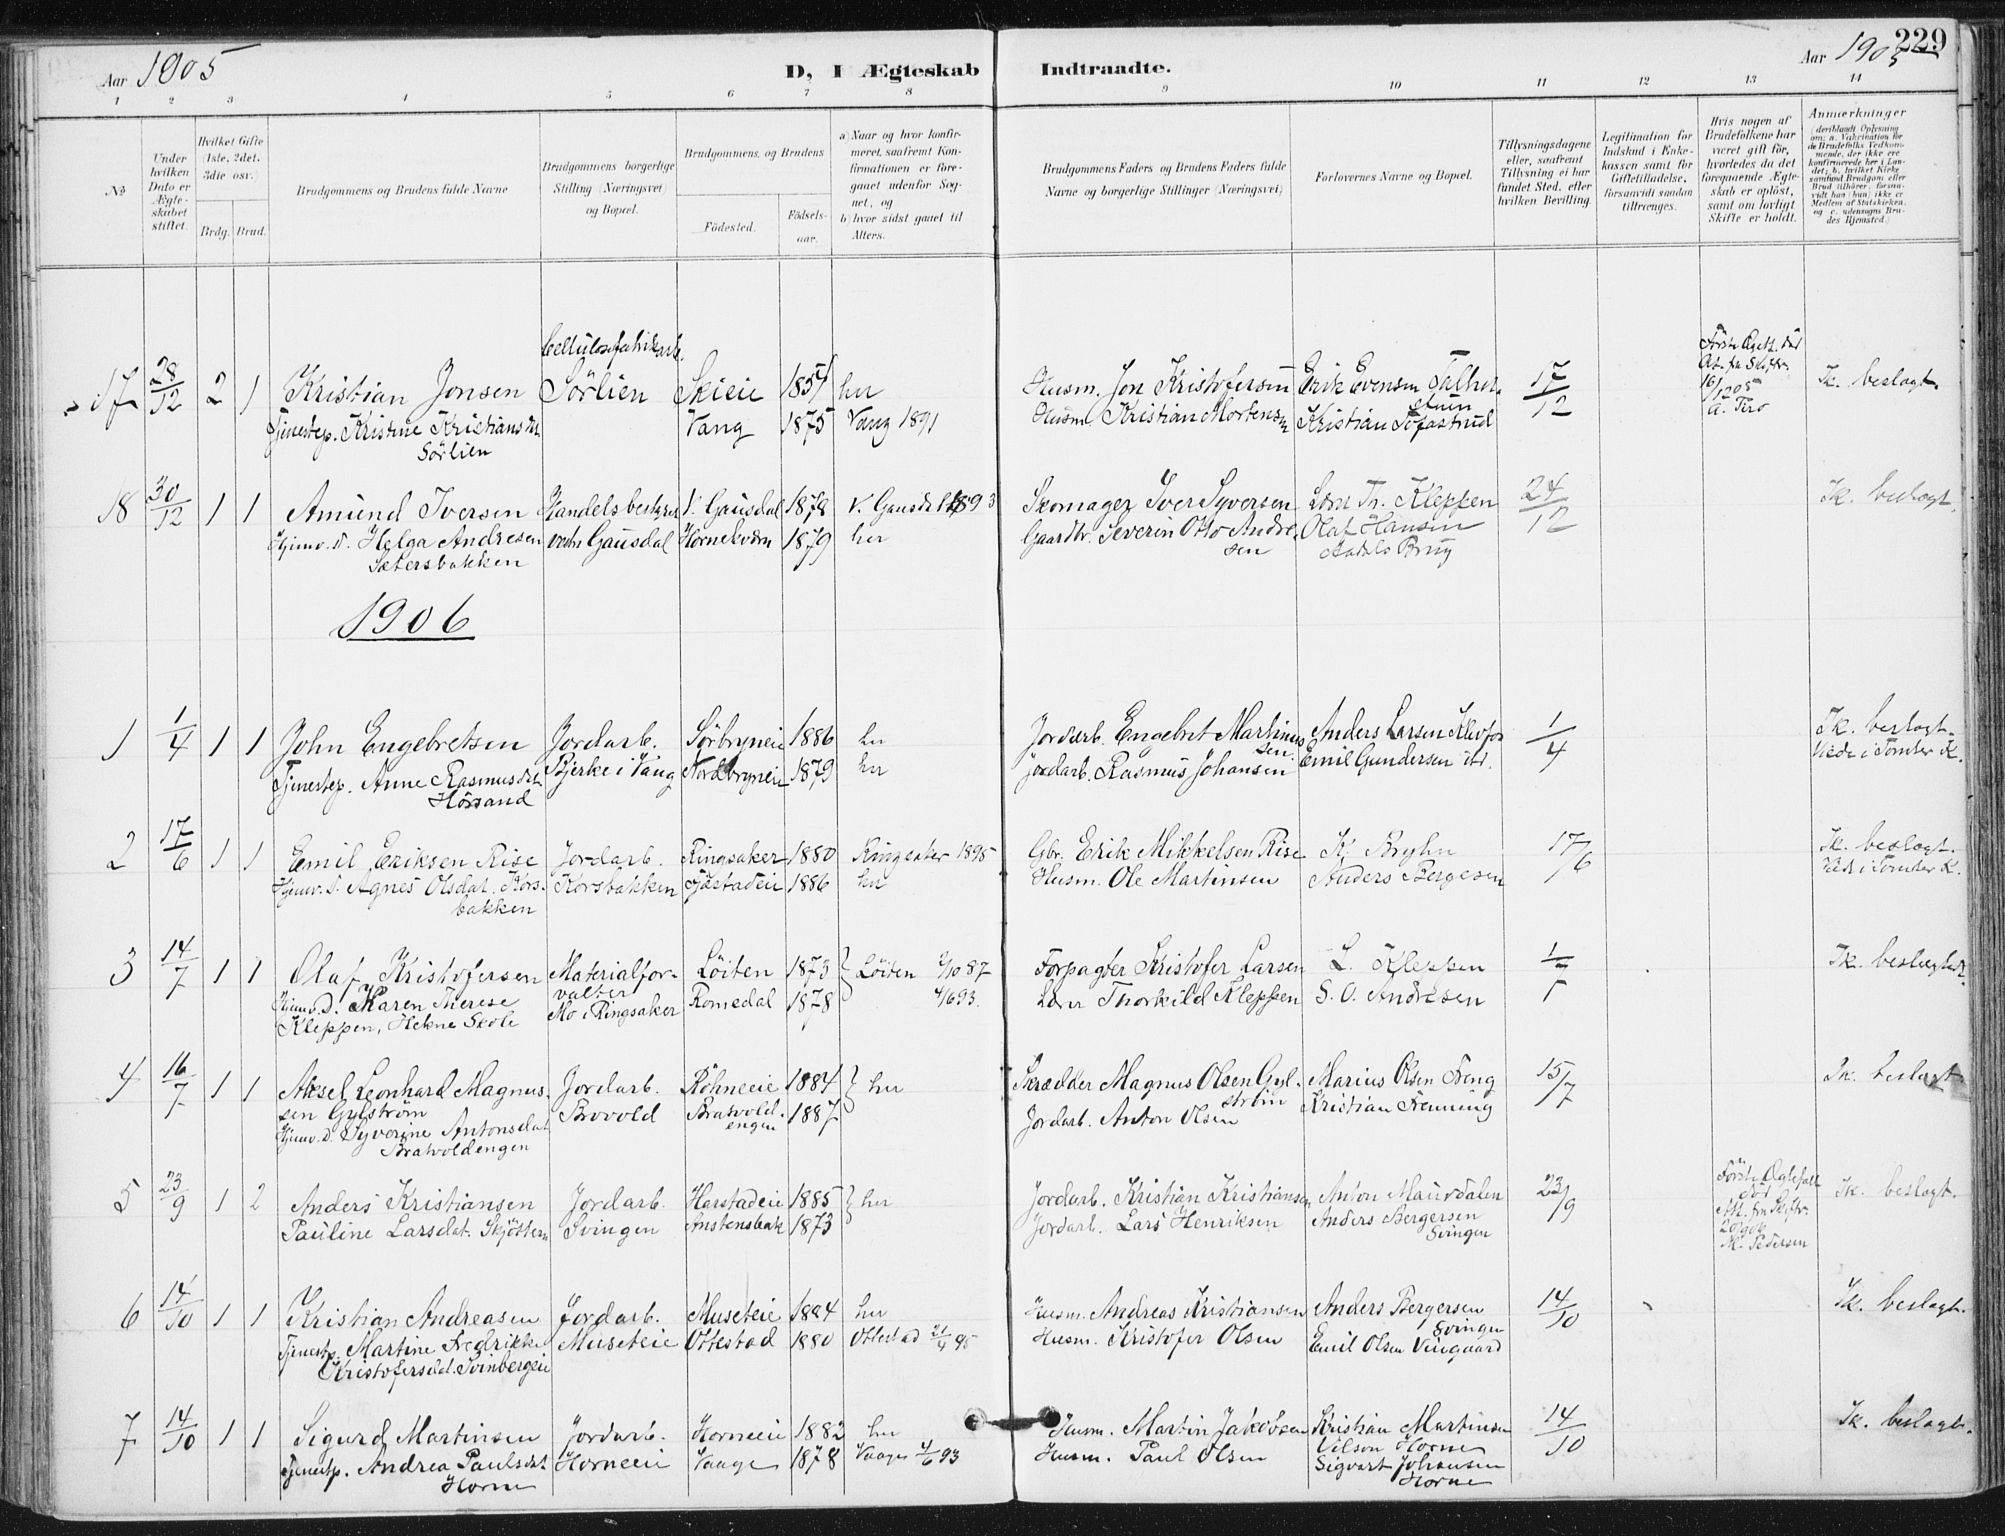 229
Aar 1905 D, I Ægteskab Indtraadte. Aar 1905
1 2 3 4 5 6 7 8 9 10 11 12 13 14
№
Under hvilken Dato er Ægteskabet stiftet.
Hvilket Gifte (1ste, 2det, 3die osv.)
Brdg. Brud.
Brudgommens og Brudens fulde Navne
Brudgommens borgerlige Stilling (Næringsvei) og Bopæl.
Brudgommens og Brudens
Födested. Födselsaar.
a) Naar og hvor konfirmeret, saafremt Konfirmationen er foregaaet udenfor Sognet, og
b) hvor sidst gaaet til Alters.
Brudgommens Faders og Brudens Faders fulde Navne og borgerlige Stillinger (Næringsvei)
Forlovernes Navne og Bopæl.
Tillysningsdagene eller, saafremt Tillysning ei har fundet Sted, efter hvilken Bevilling.
Legitimation for Indskud i Enkekassen samt for Giftetilladelse, forsaavidt saadan tiltrænges.
Hvis nogen af Brudefolkene har været gift før, hvorledes da det foregaaende Ægteskab er opløst, samt om lovligt Skifte er holdt.
Anmærkninger
(deriblandt Oplysning om: a. Vakcination for de Brudefolks Vedkommende, der ikke ere konfirmerede her i Landet; b. hvilket Kirkesamfund Brudgom eller Brud tilhörer, forsaavidt han (hun) ikke er Medlem af Statskirken, og c. udensogns Brudes Hjemsted.)
17 28/12 2 1 Kristian Jonsen Cellulosefabrikarb. Sörlien Skieie 1854 her Husm. Jon Kristofersen Erik Evensen 17/12 Ik. beslagt.
Tjenestep. Kristine Kristiansdt. Sörlien Vang 1875 Vang 1891 Husm. Kristian Mortensen Kristian Tofastrud
18 30/12 1 1 Amund Iversen Handelsbestyrer V. Gausdal 1878 V. Gausdal 1893 Skomager Iver Syversen Lærer Th. Kleppen 24/12 Ik. beslagt.
Hjemv. D. Helga Andresen Sætersbakken vestre Gausdal Hornekværn 1879 her Gaardbr. Severin Otto Andresen Olaf Hansen Aadals Brug
1906
1 1/4 1 1 John Engebretsen Jordarb. Sörbryneie 1886 her Jordarb. Engebret Martinussen Anders Larsen 1/4 Ik. beslagt.
Tjenestep. Anne Rasmusdt. Hörsand Bjerke i Vang Nordbryneie 1879 her Jordarb. Rasmus Johansen Emil Gundersen ibd. Viede i Tomter K.
2 17/6 1 1 Emil Eriksen Rise Jordarb. Ringsaker 1880 Ringsaker 1895 Gbr. Erik Mikkelsen Rise K. Bryhn 17/6 Ik. beslagt.
Hjemv. D. Agnes Olsdat. Korsbakken Korsbakken Fjæstadeie 1886 her Husm. Ole Martinsen Anders Bergesen Viede i Tomter K.
3 14/7 1 1 Olaf Kristofersen Materialforvalter Löiten 1873 Löiten 2/10 87 Forpagter Kristofer Larsen L. Kleppen 1/7 Ik. beslegtede.
Hjemv. D. Karen Therese Kleppen, Hekne Skole Mo i Ringsaker Romedal 1878 4/6 93. Lærer Thorkild Kleppen S. O. Andresen
4 16/7 1 1 Aksel Leonhard Magnussen Gylström Jordarb. Röhneeie 1884 her Skrædder Magnus Olsen Gylström Marius Olsen Feng 15/7 Ik. beslagt.
Hjemv. D. Syverine Antonsdat. Bratvoldengen Brovold Bratvoldengen 1887 Jordarb. Anton Olsen Kristian Frenning
5 23/9 1 2 Anders Kristiansen Jordarb. Harstadeie 1885 her Jordarb. Kristian Kristiansen Anton Maursdalen 23/9 Förste Ægtefælle död Ik. beslagt.
Pauline Larsdat. Skjöttern Svingen Anstensbak 1873 Jordarb. Lars Henriksen Anders Bergersen Svingen Att. fra Skiftr. M. Pedersen
6 14/10 1 1 Kristian Andreasen Jordarb. Museteie 1884 her Husm. Andreas Kristiansen Anders Bergersen Svingen 14/10 Ik. beslagt.
Tjenestp. Martine Fredrikke Kristofersdd. Svinbergeie Museteie Ottestad 1880 Ottestad 21/4 95 Husm. Kristofer Olsen Emil Olsen Vingaard
7 14/10 1 1 Sigurd Martinsen Jordarb. Horneeie 1882 her Husm. Martin Jakobsen Kristian Martinsen 14/10 Ik. beslagt.
Tjenestp. Andrea Paulsdat. Horne Horneeie Vaage 1878 Vaage 4/6 93 Husm. Paul Olsen Sigvart Johansen Horne